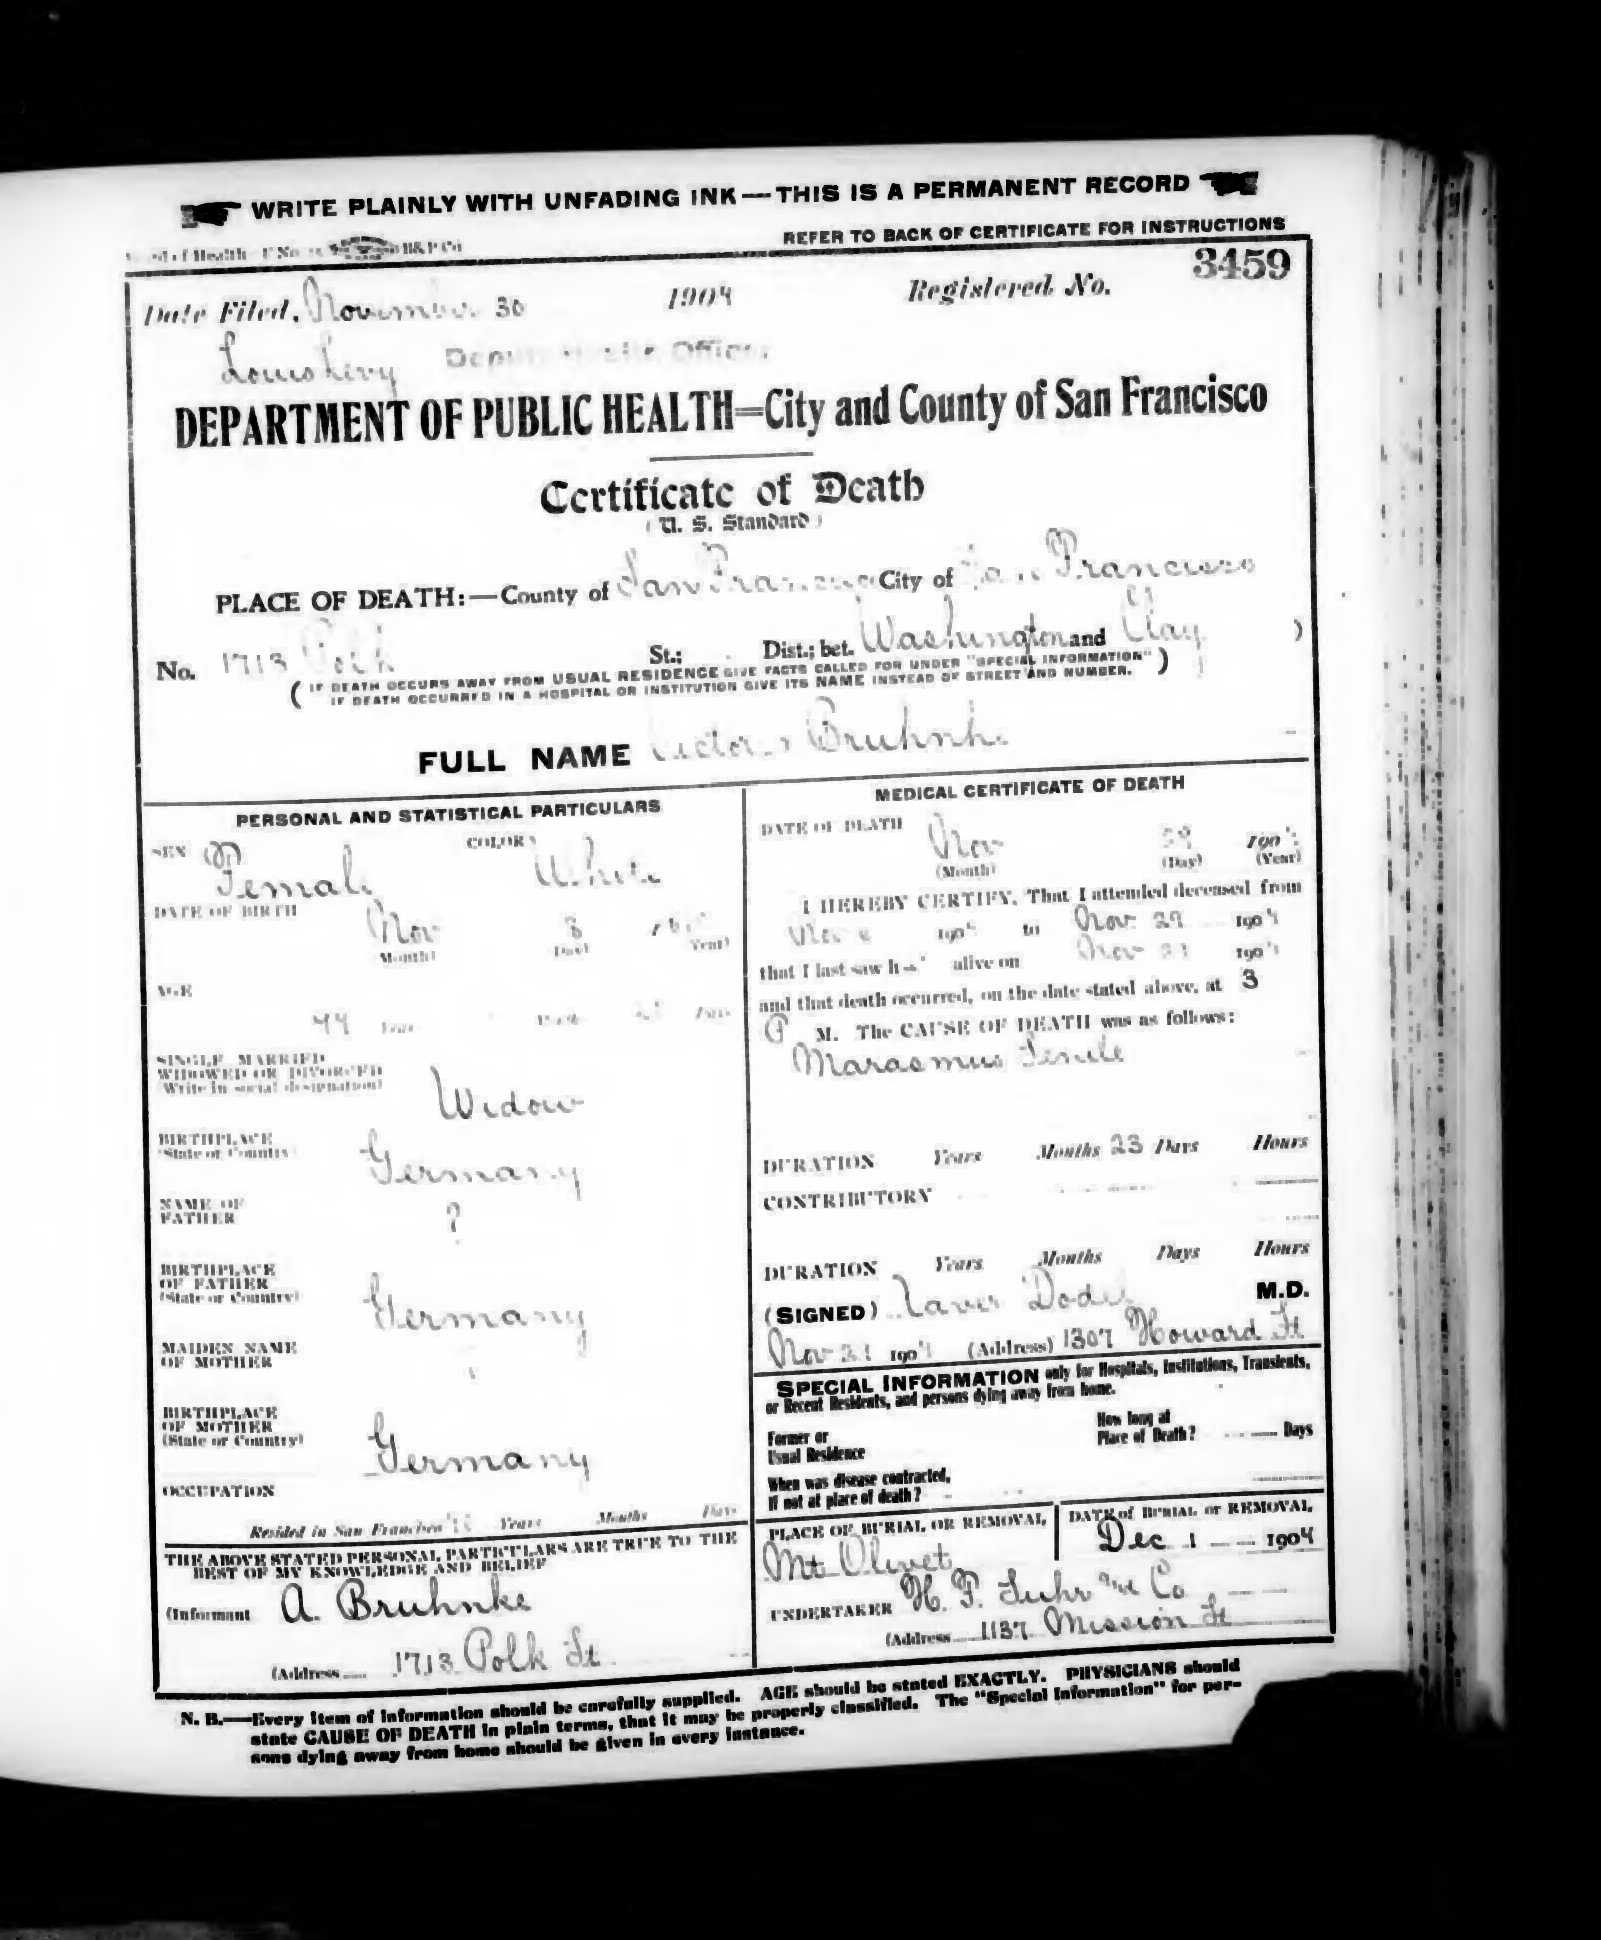 WRITE PLAINLY WITH UNFADING INK — THIS IS A PERMANENT RECORD
of Health B&P Co
REFER TO BACK OF CERTIFICATE FOR INSTRUCTIONS
Date Filed, November 30 1904 Registered No. 3459
Louis Levy Deputy Health Officer
DEPARTMENT OF PUBLIC HEALTH=City and County of San Francisco
Certificate of Death
( U. S. Standard )
PLACE OF DEATH:—County of San Francisco City of San Francisco
No. 1713 Polk St.; Dist.; bet. Washington and Clay )
( IF DEATH OCCURS AWAY FROM USUAL RESIDENCE GIVE FACTS CALLED FOR UNDER "SPECIAL INFORMATION" )
IF DEATH OCCURRED IN A HOSPITAL OR INSTITUTION GIVE ITS NAME INSTEAD OF STREET AND NUMBER.
FULL NAME Bruhnke
PERSONAL AND STATISTICAL PARTICULARS
SEX Female COLOR White
DATE OF BIRTH Nov 8
(Month) (Day) (Year)
AGE
Years Months Days
SINGLE MARRIED
WIDOWED OR DIVORCED
(Write in social designation)
Widow
BIRTHPLACE
(State or Country)
Germany
NAME OF
FATHER
?
BIRTHPLACE
OF FATHER
(State or Country)
Germany
MAIDEN NAME
OF MOTHER
BIRTHPLACE
OF MOTHER
(State or Country)
Germany
OCCUPATION
Resided in San Francisco Years Months Days
THE ABOVE STATED PERSONAL PARTICULARS ARE TRUE TO THE
BEST OF MY KNOWLEDGE AND BELIEF
(Informant A. Bruhnke
(Address 1713 Polk St
MEDICAL CERTIFICATE OF DEATH
DATE OF DEATH Nov 29 190
(Month) (Day) (Year)
I HEREBY CERTIFY, That I attended deceased from
Nov 1904 to Nov 29 1904
that I last saw h alive on Nov 1904
and that death occurred, on the date stated above, at 3
P M. The CAUSE OF DEATH was as follows:
Marasmus Senile
DURATION Years Months 23 Days Hours
CONTRIBUTORY
DURATION Years Months Days Hours
(SIGNED) Xaver Dodel M.D.
Nov 1904 (Address) 1307 Howard St
SPECIAL INFORMATION only for Hospitals, Institutions, Transients,
or Recent Residents, and persons dying away from home.
Former or
Usual Residence
How long at
Place of Death? Days
When was disease contracted,
If not at place of death?
PLACE OF BURIAL OR REMOVAL
Mt Olivet
DATE of BURIAL or REMOVAL
Dec 1 1904
UNDERTAKER H. F. Suhr and Co
(Address 1137 Mission St
N. B.—Every item of information should be carefully supplied. AGE should be stated EXACTLY. PHYSICIANS should
state CAUSE OF DEATH in plain terms, that it may be properly classified. The "Special Information" for per-
sons dying away from home should be given in every instance.